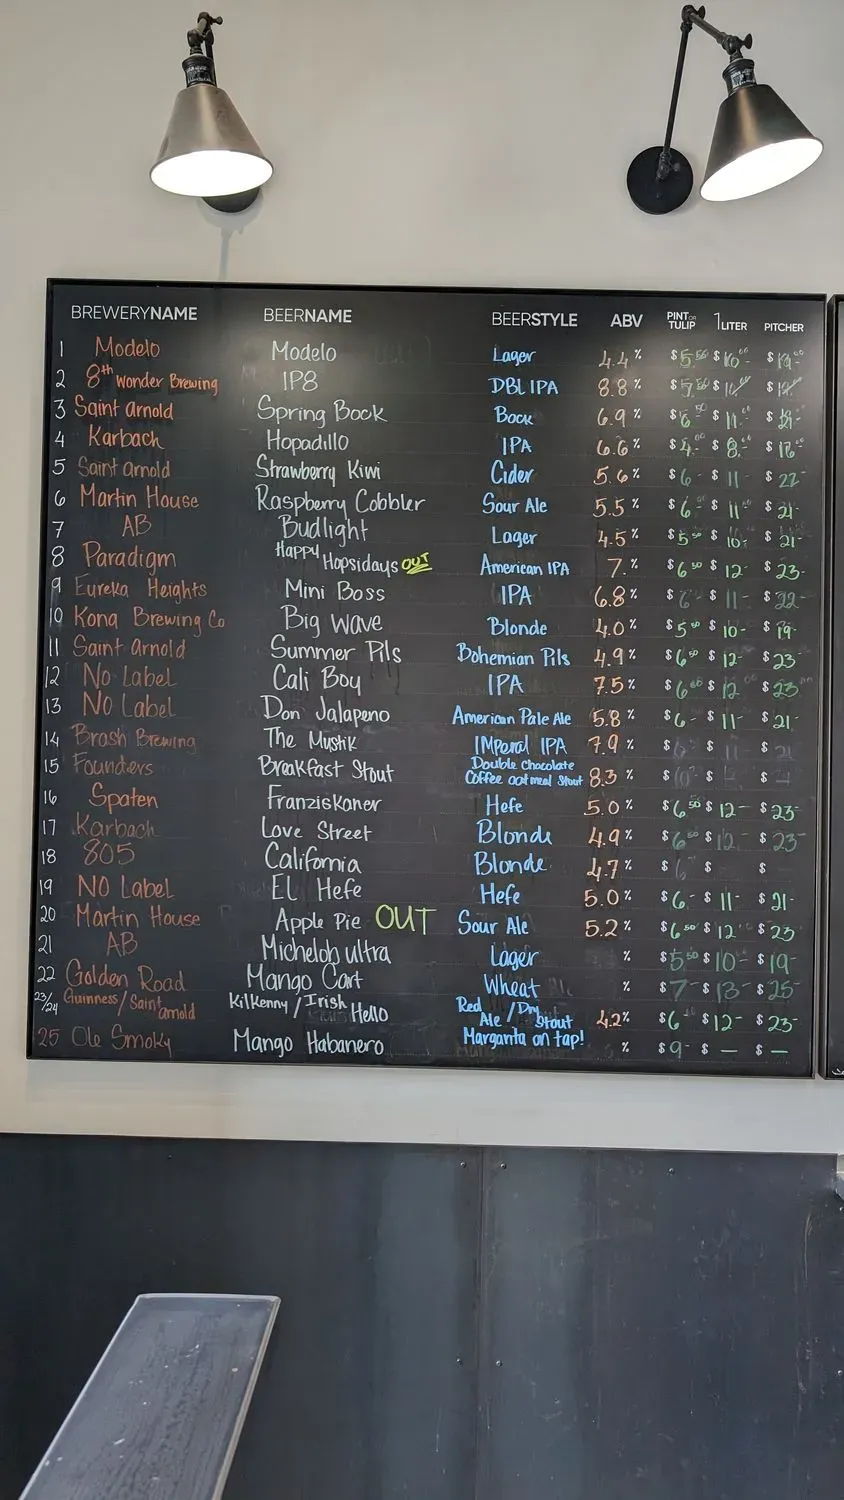 BREWERYNAME BEERNAME BEERSTYLE ABV PINT OR TULIP 1LITER PITCHER
1 Modelo Modelo Lager 4.4% $5.50 $10 $
2 8th Wonder Brewing IP8 DBL IPA 8.8% $5.50 $ $
3 Saint Arnold Spring Bock Bock 6.9% $6.50 $11 $
4 Karbach Hopadillo IPA 6.6% $4.00 $8. $16
5 Saint Arnold Strawberry Kiwi Cider 5.6% $6- $11 $22-
6 Martin House Raspberry Cobbler Sour Ale 5.5% $6- $11 $21-
7 AB Budlight Lager 4.5% $5.50 $10- $21-
8 Paradigm Happy Hopsidays OUT American IPA 7.% $6.50 $12- $23-
9 Eureka Heights Mini Boss IPA 6.8% $6- $11- $22-
10 Kona Brewing Co Big Wave Blonde 4.0% $5.00 $10- $19-
11 Saint Arnold Summer Pils Bohemian Pils 4.9% $6.50 $12- $23
12 No Label Cali Boy IPA 7.5% $6 $12 $23
13 No Label Don Jalapeno American Pale Ale 5.8% $6- $11- $21-
14 Brash Brewing The Mustik IMperal IPA 7.9% $ $11 $21
15 Founders Breakfast Stout Double Chocolate Coffee oatmeal Stout 8.3% $ $ $
16 Spaten Franziskaner Hefe 5.0% $6.50 $12- $23-
17 Karbach Love Street Blonde 4.9% $6.50 $12- $23-
18 805 California Blonde 4.7% $6 $ $
19 No Label El Hefe Hefe 5.0% $6- $11- $21-
20 Martin House Apple Pie OUT Sour Ale 5.2% $6.50 $12 $23
21 AB Michelob ultra Lager % $5.50 $10- $19-
22 Golden Road Mango Cart Wheat % $7- $13- $25-
23/24 Guinness/Saint arnold Kilkenny/Irish Hello Red Ale/Dry Stout 4.2% $6 $12- $23-
25 Ole Smoky Mango Habanero Margarita on tap! % $9- $— $—